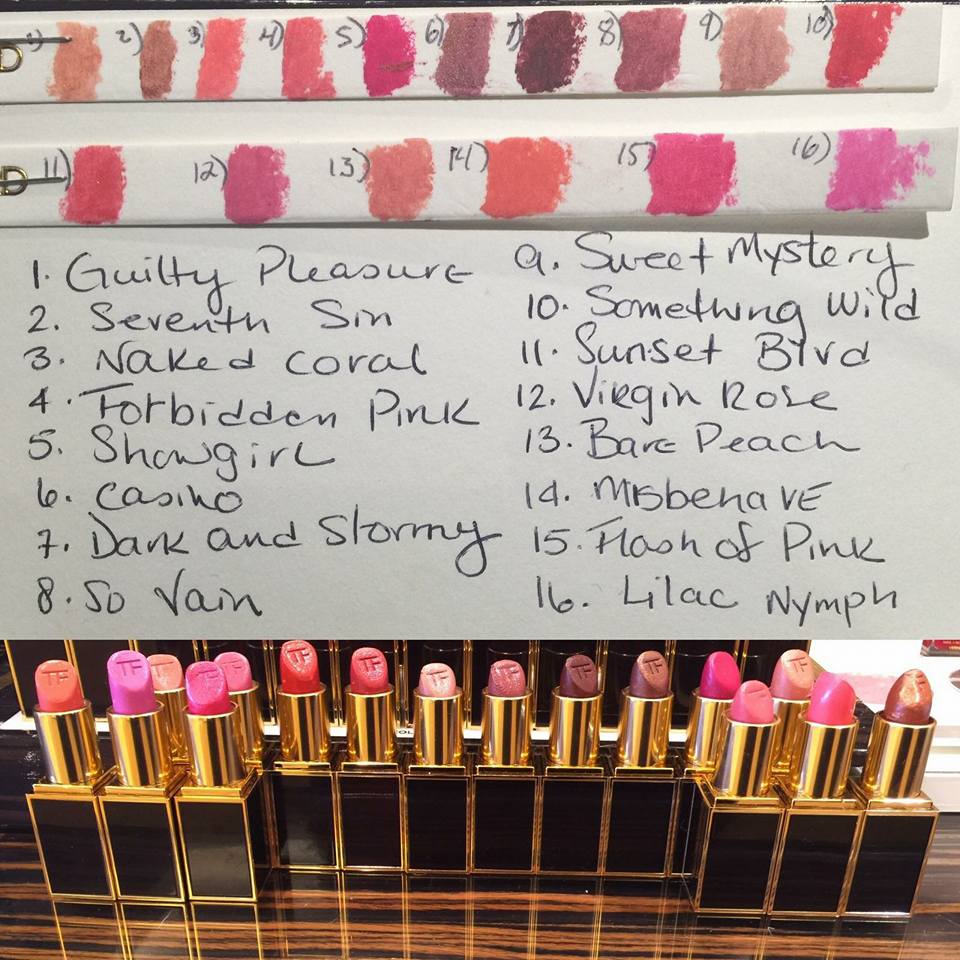 1) 2) 3) 4) 5) 6) 7) 8) 9) 10)
11) 12) 13) 14) 15) 16)
1. Guilty Pleasure
2. Seventh Sin
3. Naked Coral
4. Forbidden Pink
5. Showgirl
6. Casino
7. Dark and Stormy
8. So Vain
9. Sweet Mystery
10. Something Wild
11. Sunset Blvd
12. Virgin Rose
13. Bare Peach
14. Misbehave
15. Flash of Pink
16. Lilac Nymph
TF TF TF TF TF TF TF TF TF TF